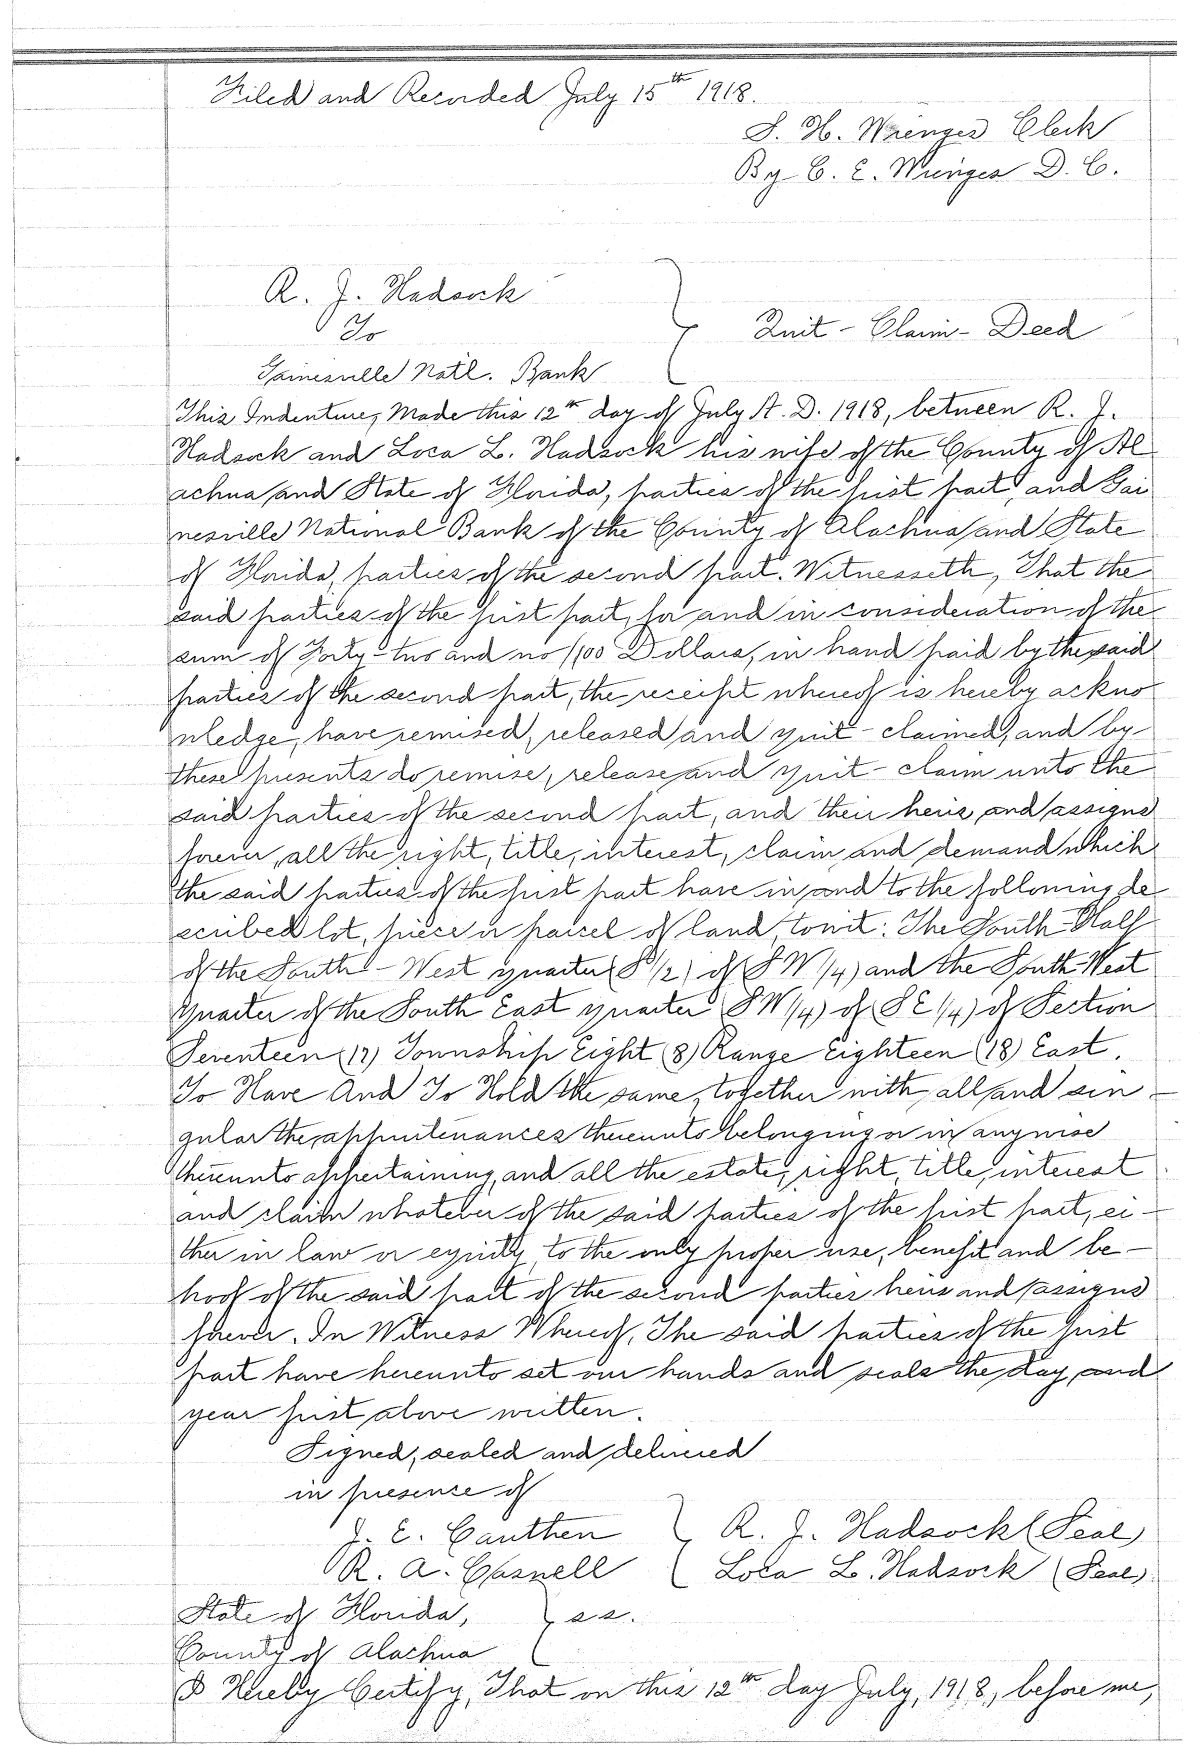 Filed and Recorded July 15th 1918.
S. H. Wienges Clerk
By C. E. Wienges D. C.
R. J. Hadsock
To
Quit-Claim-Deed
Gainesville Natl. Bank
This Indenture, Made this 12th day of July A. D. 1918, between R. J.
Hadsock and Loca L. Hadsock his wife of the County of Al
achua and State of Florida, parties of the first part, and Gai
nesville National Bank of the County of Alachua and State
of Florida, parties of the second part. Witnesseth, That the
said parties of the first part, for and in consideration of the
sum of Forty-two and no/100 Dollars, in hand paid by the said
parties of the second part, the receipt whereof is hereby ackno
wledge, have remised, released and quit-claimed, and by
these presents do remise, release and quit-claim unto the
said parties of the second part, and their heirs and assigns
forever, all the right, title, interest, claim and demand which
the said parties of the first part have in and to the following de
scribed lot, piece or parcel of land, towit: The South Half
of the South-West quarter (S 1/2) of (SW 1/4) and the South West
Quarter of the South East quarter (SW 1/4) of (SE 1/4) of Section
Seventeen (17) Township Eight (8) Range Eighteen (18) East.
To Have And To Hold the same, together with all and sin-
gular the appurtenances thereunto belonging or in anywise
thereunto appertaining, and all the estate, right, title, interest
and claim whatever of the said parties of the first part, ei-
ther in law or equity, to the only proper use, benefit and be-
hoof of the said part of the second parties heirs and assigns
forever. In Witness Whereof, The said parties of the first
part have hereunto set our hands and seals the day and
year first above written.
Signed, sealed and delivered
in presence of
J. E. Cauthen R. J. Hadsock (Seal)
R. A. Casnell Loca L. Hadsock (Seal)
State of Florida, ss.
County of Alachua
I Hereby Certify, That on this 12th day July, 1918, before me,